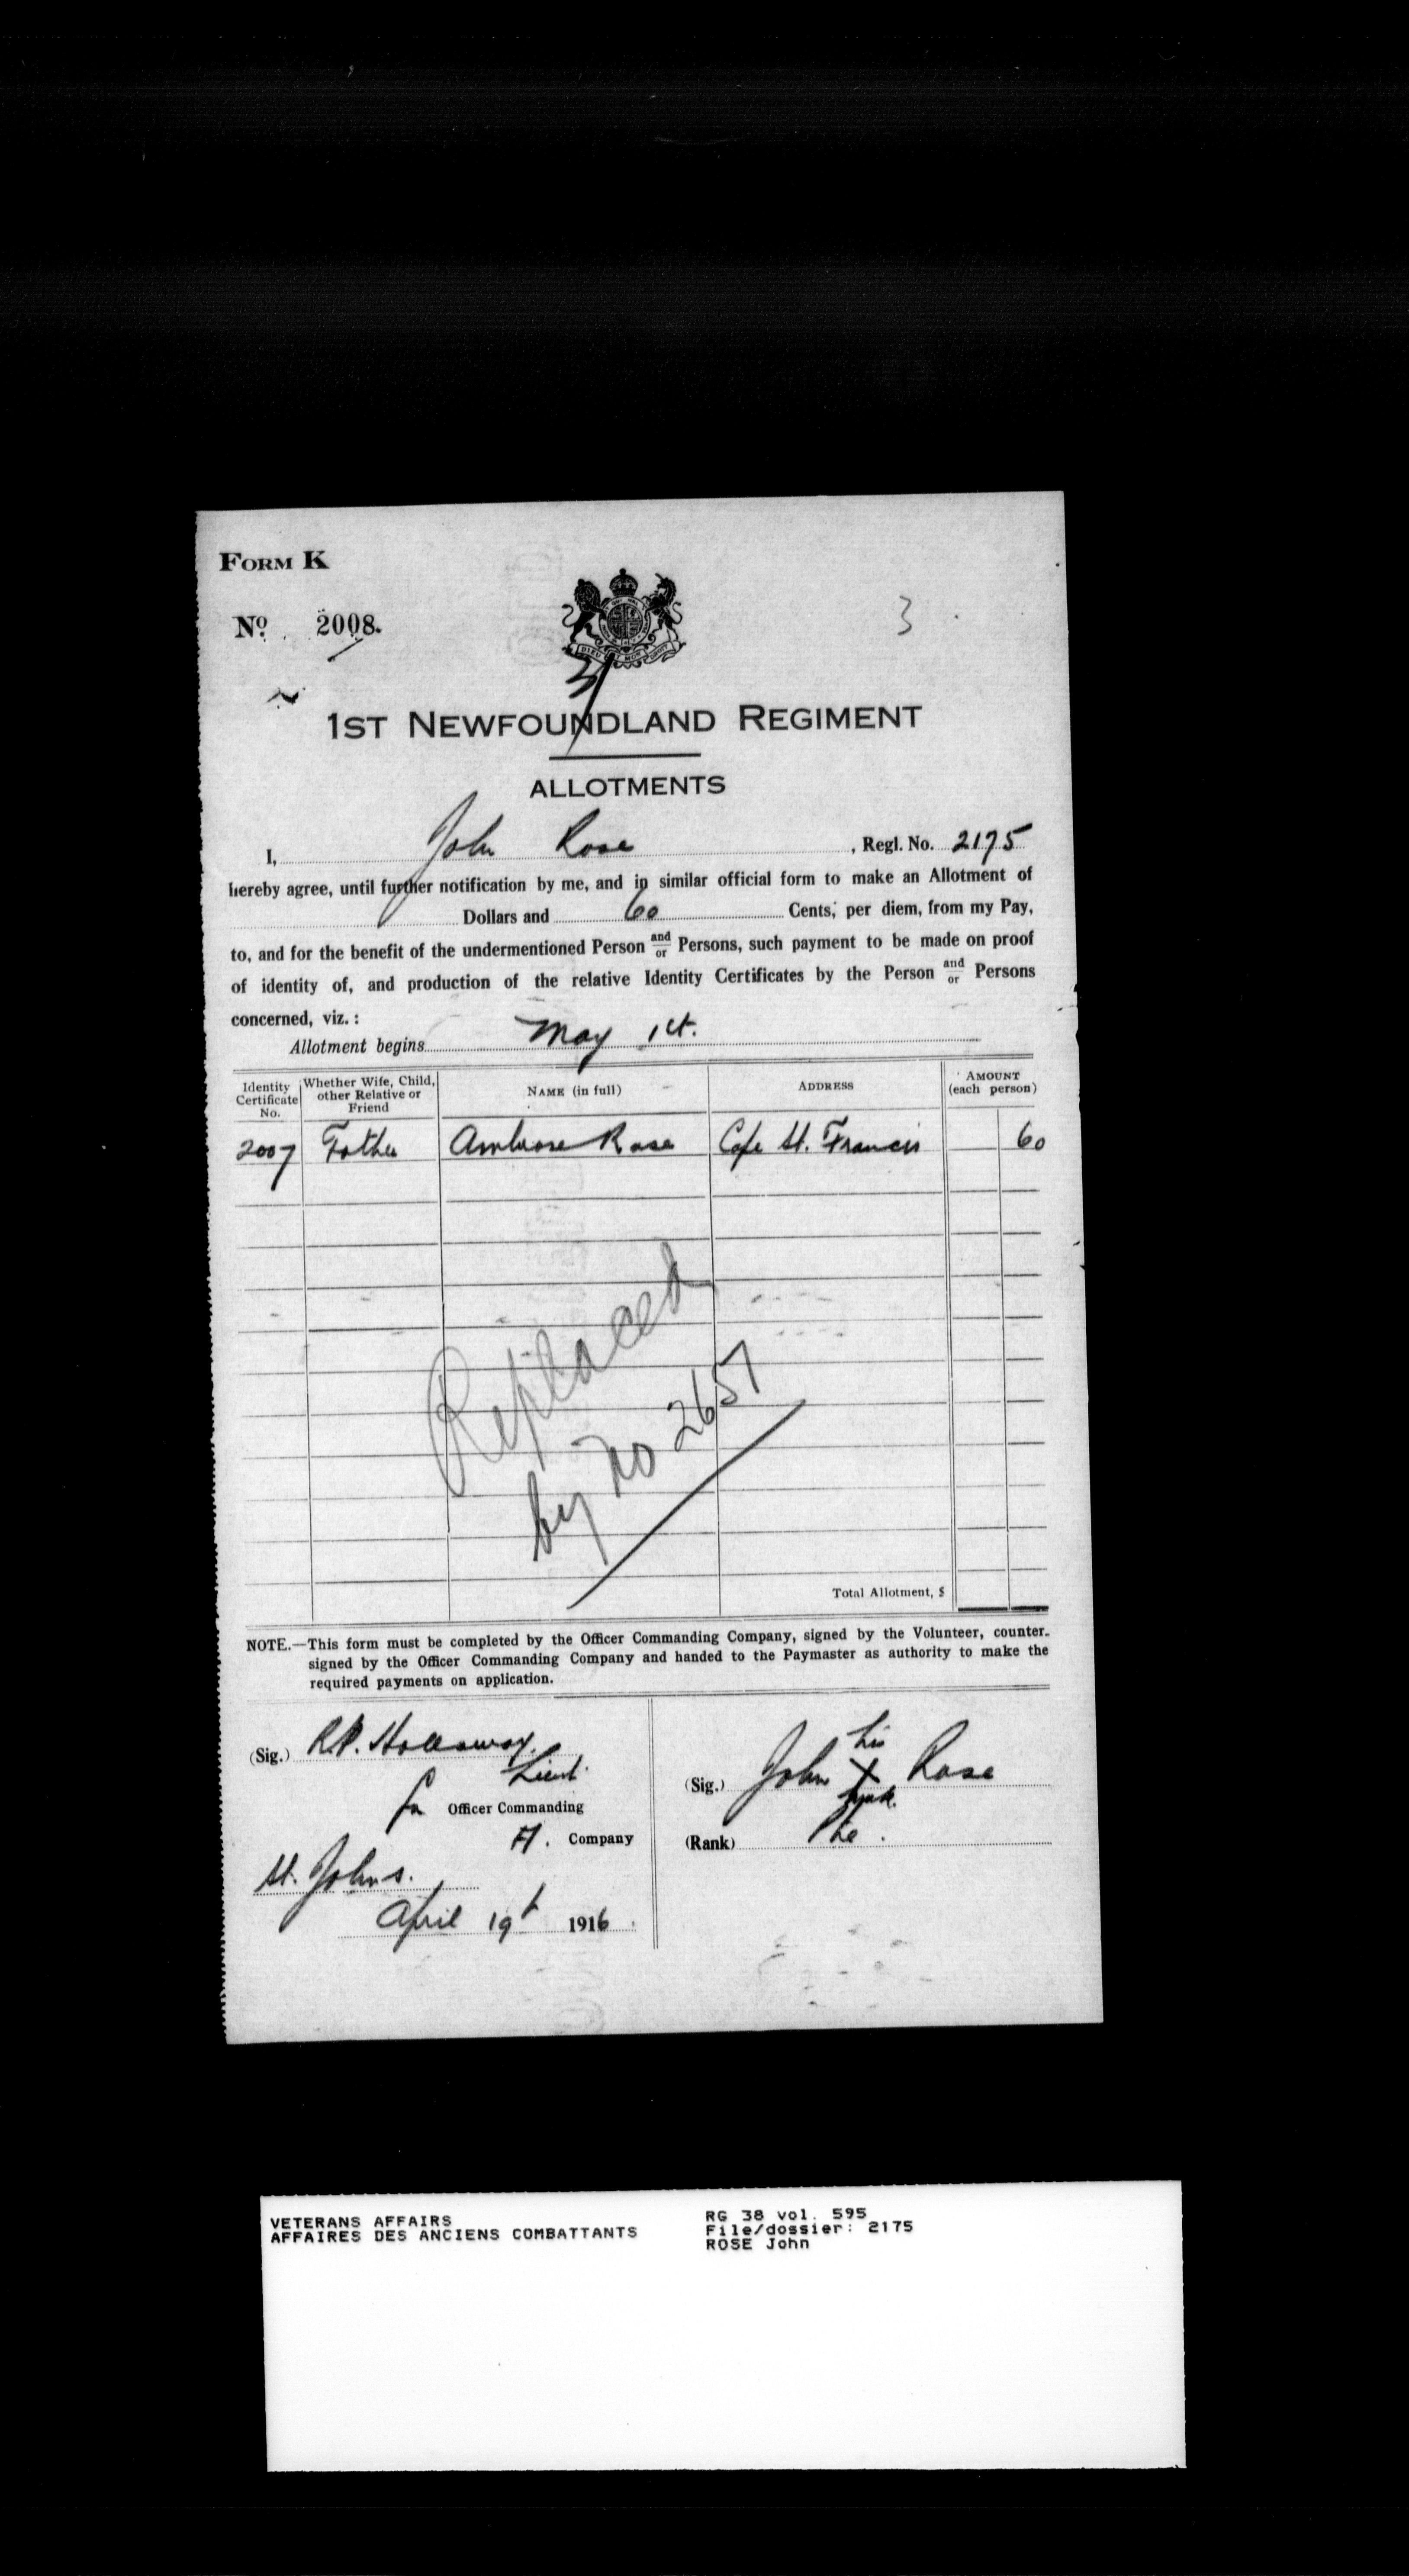 FORM K
No. 2008.
3
DIEU ET MON DROIT
1ST NEWFOUNDLAND REGIMENT
ALLOTMENTS
I, John Rose, Regl. No. 2175
hereby agree, until further notification by me, and in similar official form to make an Allotment of
Dollars and 60 Cents, per diem, from my Pay,
to, and for the benefit of the undermentioned Person and/or Persons, such payment to be made on proof
of identity of, and production of the relative Identity Certificates by the Person and/or Persons
concerned, viz.:
Allotment begins May 1st.
Identity Certificate No. Whether Wife, Child, other Relative or Friend NAME (in full) ADDRESS AMOUNT (each person)
2007 Father Ambrose Rose Cape St. Francis 60
Replaced
by No 2657
Total Allotment, $
NOTE.—This form must be completed by the Officer Commanding Company, signed by the Volunteer, counter-
signed by the Officer Commanding Company and handed to the Paymaster as authority to make the
required payments on application.
(Sig.) R.P. Holloway.
Lieut.
for Officer Commanding
H. Company
St. Johns.
April 19th 1916.
(Sig.) John his X mark. Rose
(Rank) Pte.
VETERANS AFFAIRS
AFFAIRES DES ANCIENS COMBATTANTS
RG 38 vol. 595
File/dossier: 2175
ROSE John